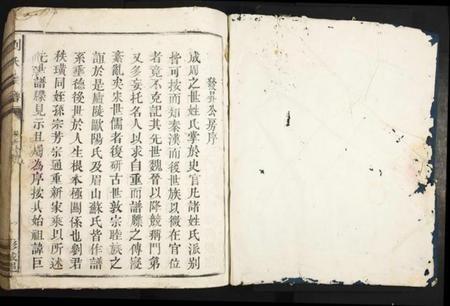 發昇公房序
成周之世姓氏掌於史官凡諸姓氏派別
皆可按而知秦漢而後世族以微在官位
者竟不克記其先世魏晉以降競稱門第
又多妄托名人以求自重而譜牒之傳寖
紊亂矣宋世儒者復研古世敦宗睦族之
誼於是廬陵歐陽氏及眉山蘇氏皆作譜
系垂德後世於人生根本極關係也劉君
秩璜同姪孫宗芳宗通重新家乘以所述
先世譜牒見示且屬為序按其始祖諱巨